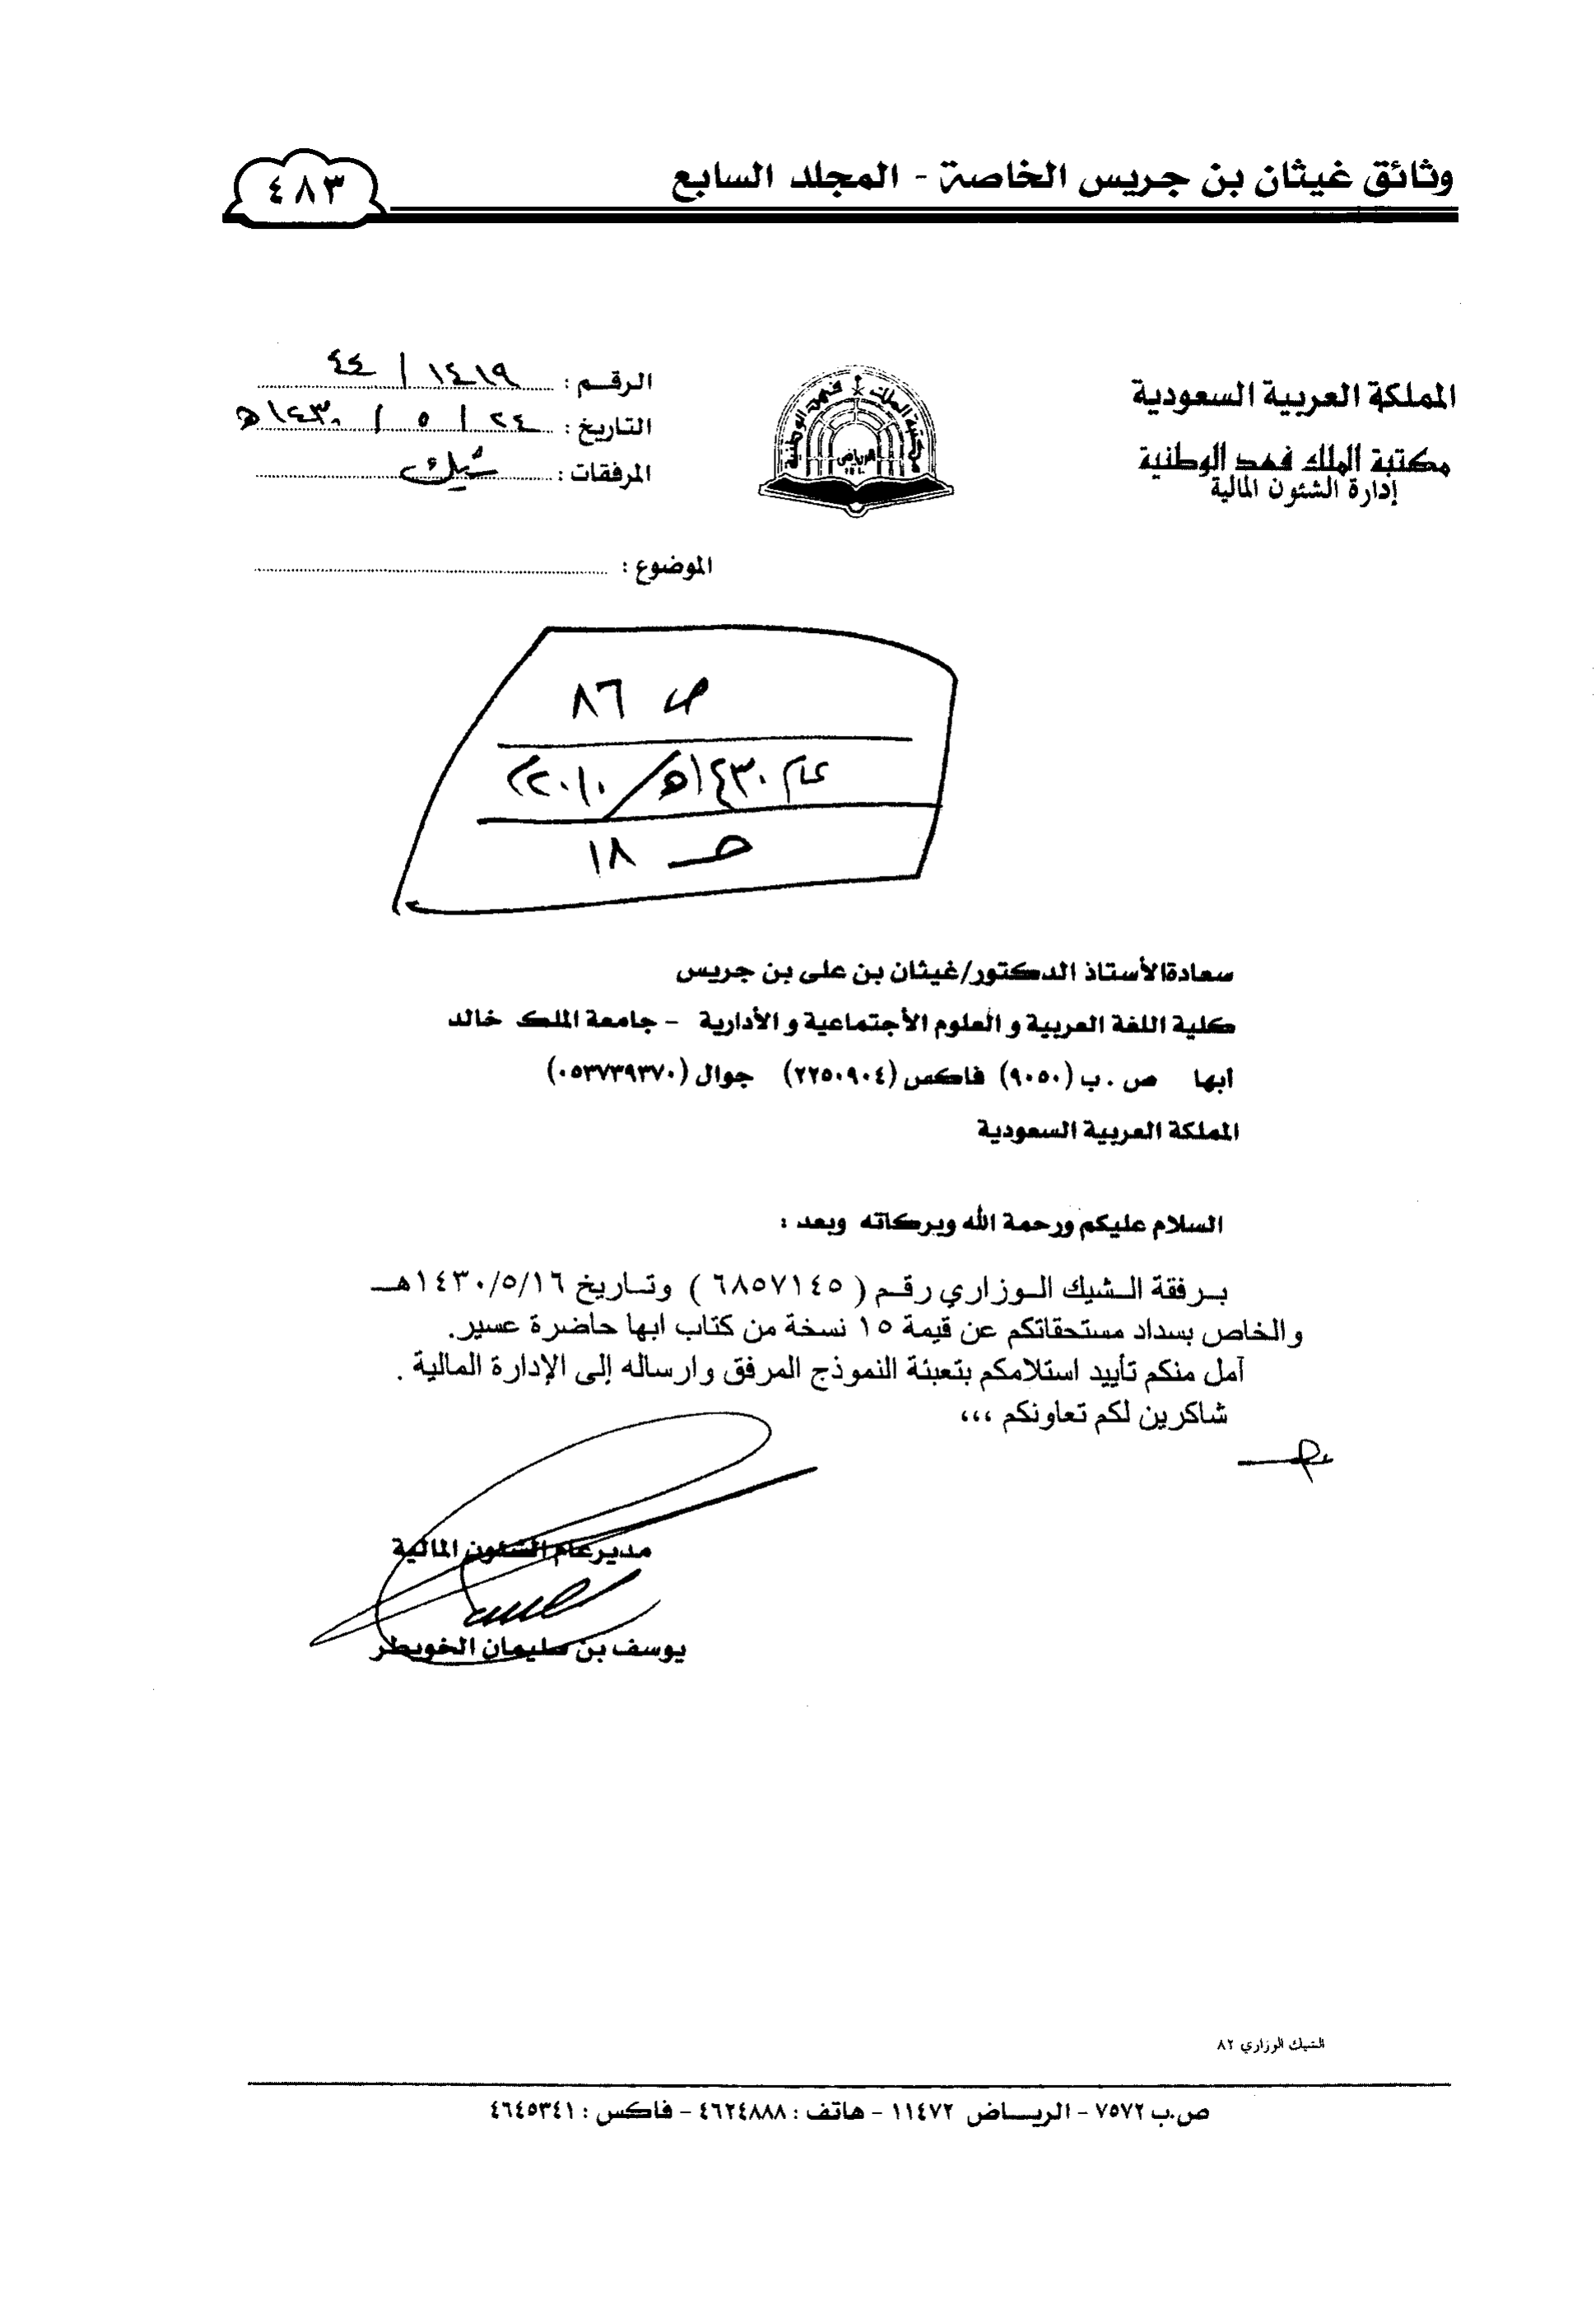 وثائق غيثان بن جريس الخاصة - المجلد السابع
٤٨٣
المملكة العربية السعودية
مكتبة الملك فهد الوطنية
إدارة الشئون المالية
مكتبة الملك فهد الوطنية
الرياض
الرقم : ١٤١٩ / ٤٤
التاريخ : ٢٤ / ٥ / ١٤٣٠هـ
المرفقات : شيك
الموضوع :
ص ٨٦
عام ١٤٣٠هـ / ٢٠١٠م
حـ ١٨
سعادةالأستاذ الدكتور/غيثان بن على بن جريس
كلية اللغة العربية و العلوم الأجتماعية و الأدارية - جامعة الملك خالد
ابها ص . ب (٩٠٥٠) فاكس (٢٢٥٠٩٠٤) جوال (٠٥٣٧٣٩٣٧٠)
المملكة العربية السعودية
السلام عليكم ورحمة الله وبركاته وبعد :
برفقة الشيك الوزاري رقم ( ٦٨٥٧١٤٥ ) وتاريخ ١٤٣٠/٥/١٦هـ
والخاص بسداد مستحقاتكم عن قيمة ١٥ نسخة من كتاب ابها حاضرة عسير.
آمل منكم تأييد استلامكم بتعبئة النموذج المرفق وارساله إلى الإدارة المالية .
شاكرين لكم تعاونكم ،،،
مدير عام الشئون المالية
يوسف بن سليمان الخويطر
الشيك الوزاري ٨٢
ص.ب ٧٥٧٢ - الرياض ١١٤٧٢ - هاتف : ٤٦٢٤٨٨٨ - فاكس : ٤٦٤٥٣٤١